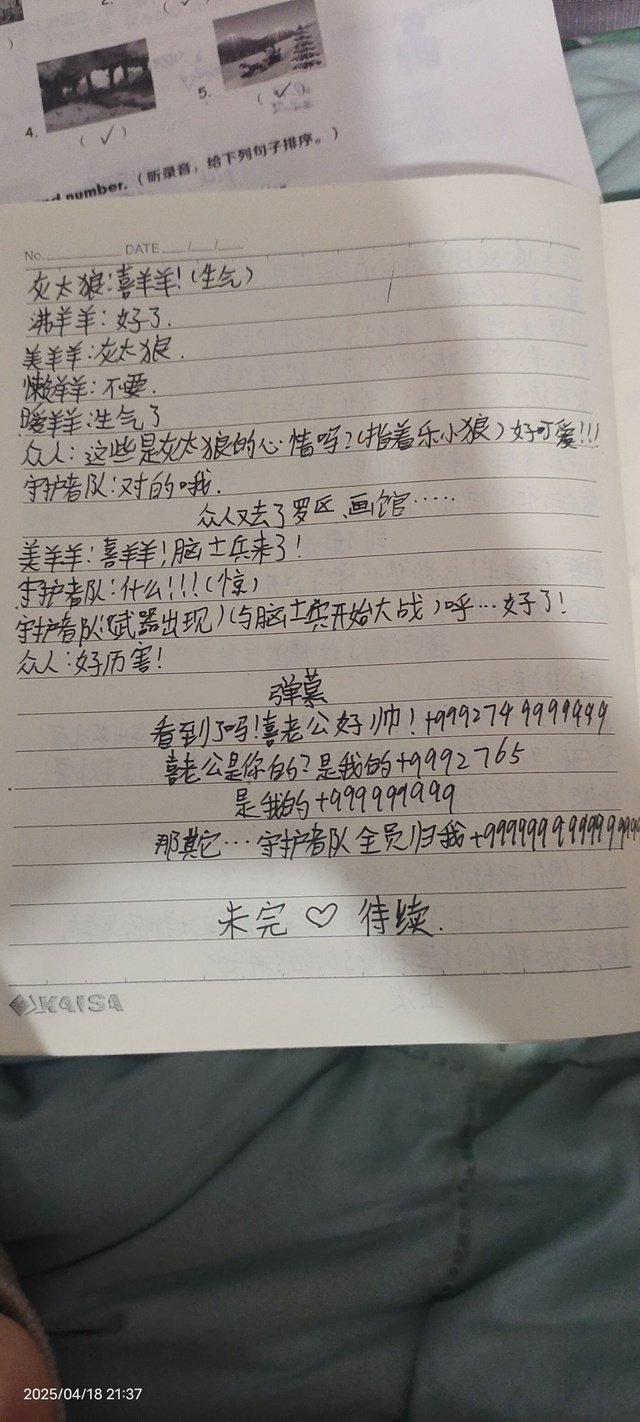 2.
(✓)
)
5.
(✓)
4.
(✓)
nd number.(听录音,给下列句子排序。)
No. DATE / /
灰太狼:喜羊羊!(生气)
沸羊羊:好了.
美羊羊:灰太狼.
懒羊羊:不要.
暖羊羊:生气了
众人:这些是灰太狼的心情吗?(指着乐小狼)好可爱!!!
守护者队:对的哦.
众人又去了罗区画馆……
美羊羊:喜羊羊!脑士兵来了!
守护者队:什么!!!(惊)
守护者队:(武器出现)(与脑士兵开始大战)呼…好了!
众人:好厉害!
弹幕
看到了吗!喜老公好帅!+9992749999999
喜老公是你的?是我的+9992765
是我的+999999999
那其它…守护者队全员归我
未完♡待续.
KAISA
2025/04/18 21:37